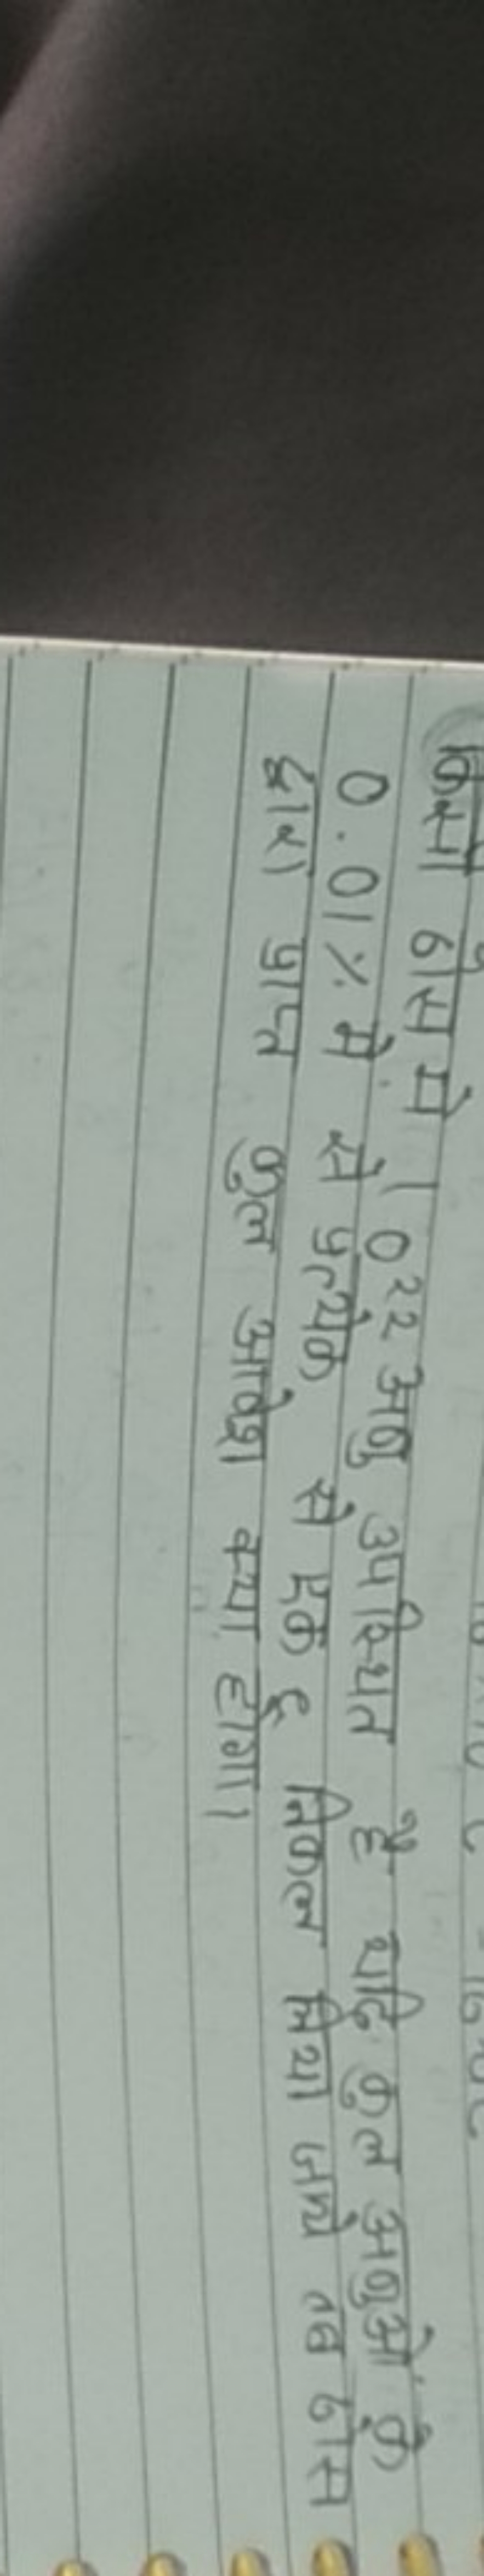 किसी ठोस में 10²² अणु उपस्थित है यदि कुल अणुओं के
0.01% में से प्रत्येक से एक e निकल लिया जाये तब ठोस
द्वारा प्राप्त कुल आवेश क्या होगा।